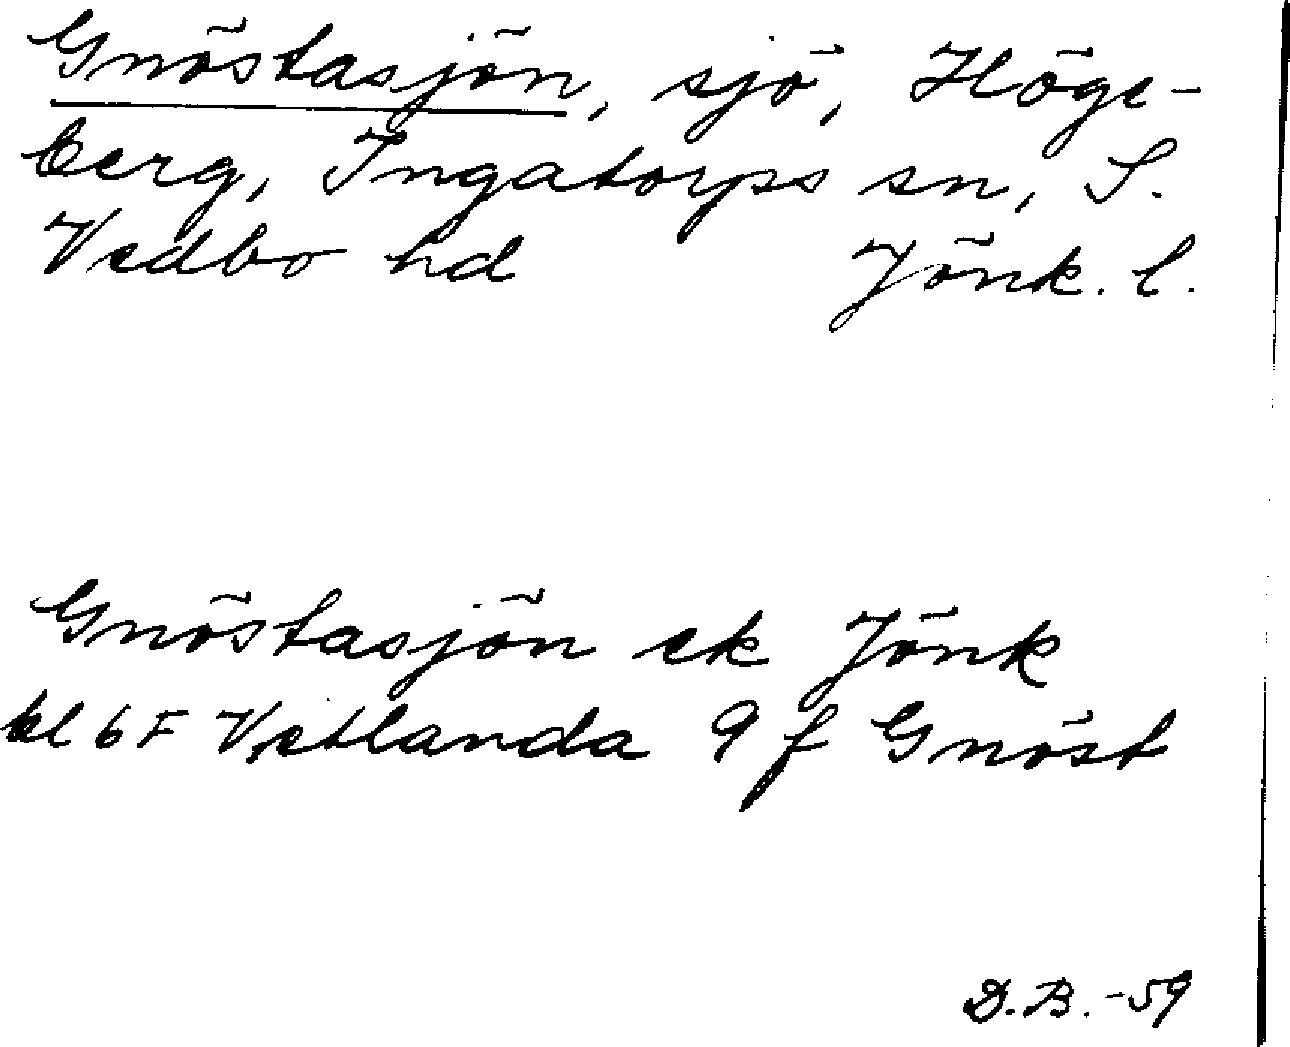 Gnöstasjön, sjö, Höge-
berg, Ingatorps sn, S.
Vedbo hd Jönk. l.
Gnöstasjön ek Jönk
bl 6 F Vetlanda 9 f Gnöst
D.B. -59